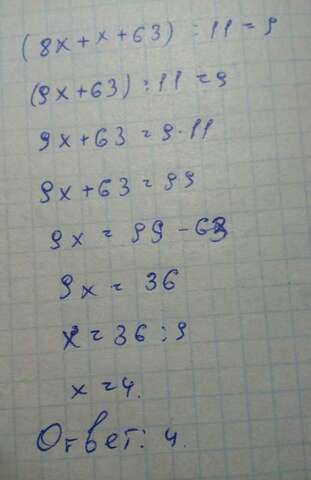 (8x + x + 63) : 11 = 9
(9x + 63) : 11 = 9
9x + 63 = 9 · 11
9x + 63 = 99
9x = 99 - 63
9x = 36
x = 36 : 9
x = 4.
Ответ: 4.